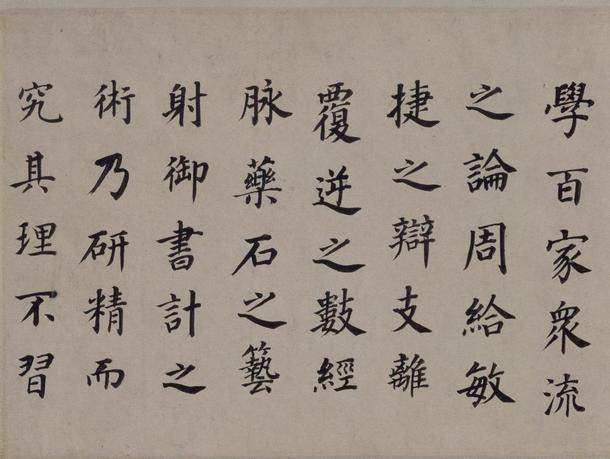 學百家衆流
之論周給敏
捷之辯支離
覆逆之數經
脉藥石之藝
射御書計之
術乃研精而
究其理不習